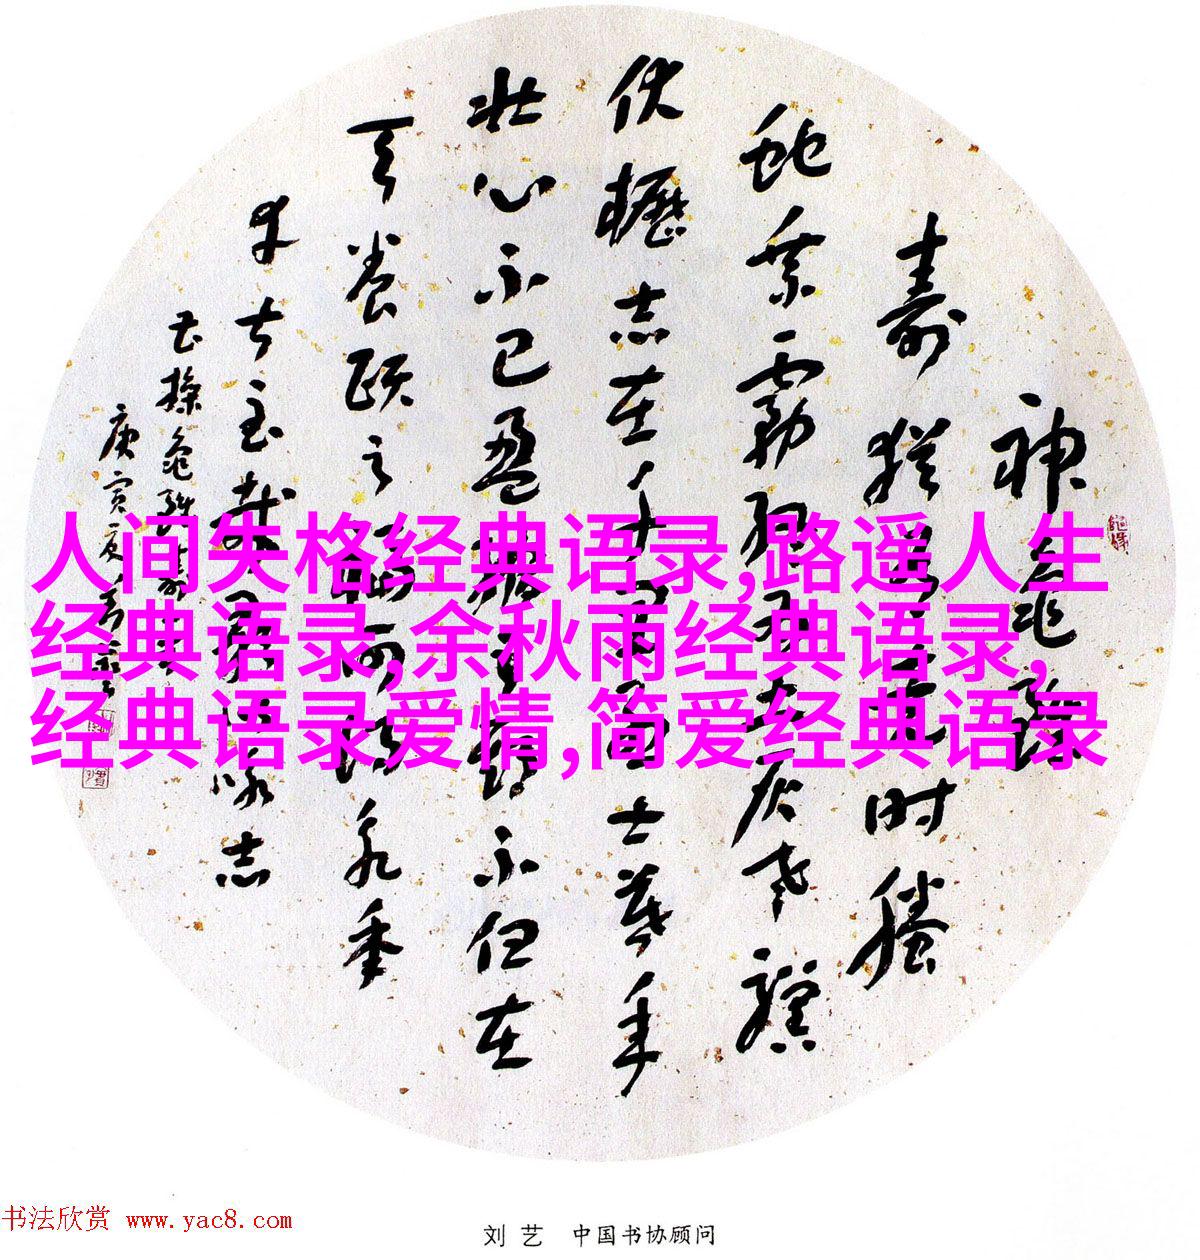 神龟虽
寿猶有竟时螣
蛇乘雾终为土灰老骥
伏櫪志在千里烈士暮年
壮心不已盈缩之期不但在
天养颐之福可得永年
幸甚至哉歌以咏志
曹操龟虽寿
庚寅夏刘艺
人间失格经典语录,路遥人生
经典语录,余秋雨经典语录,
经典语录爱情,简爱经典语录
书法欣赏 www.yac8.com
刘艺 中国书协顾问